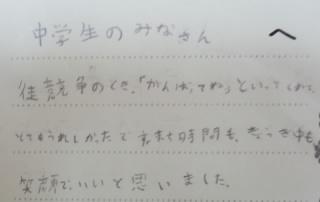 中学生のみなさん へ
徒競争のとき、「がんばってね」といってくれて、
とてもうれしかったです。待ち時間も、きゅうけい中も、
笑顔でいいと思いました。